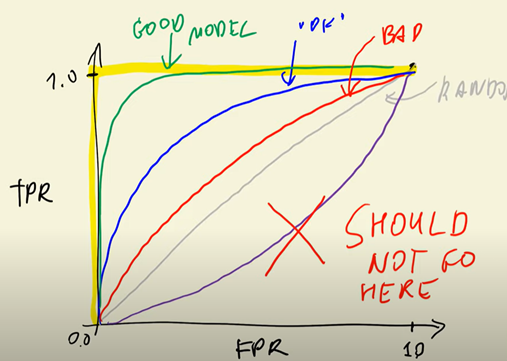 GOOD MODEL
"OK"
BAD
1.0
TPR
SHOULD
NOT GO
HERE
0.0
FPR
1.0